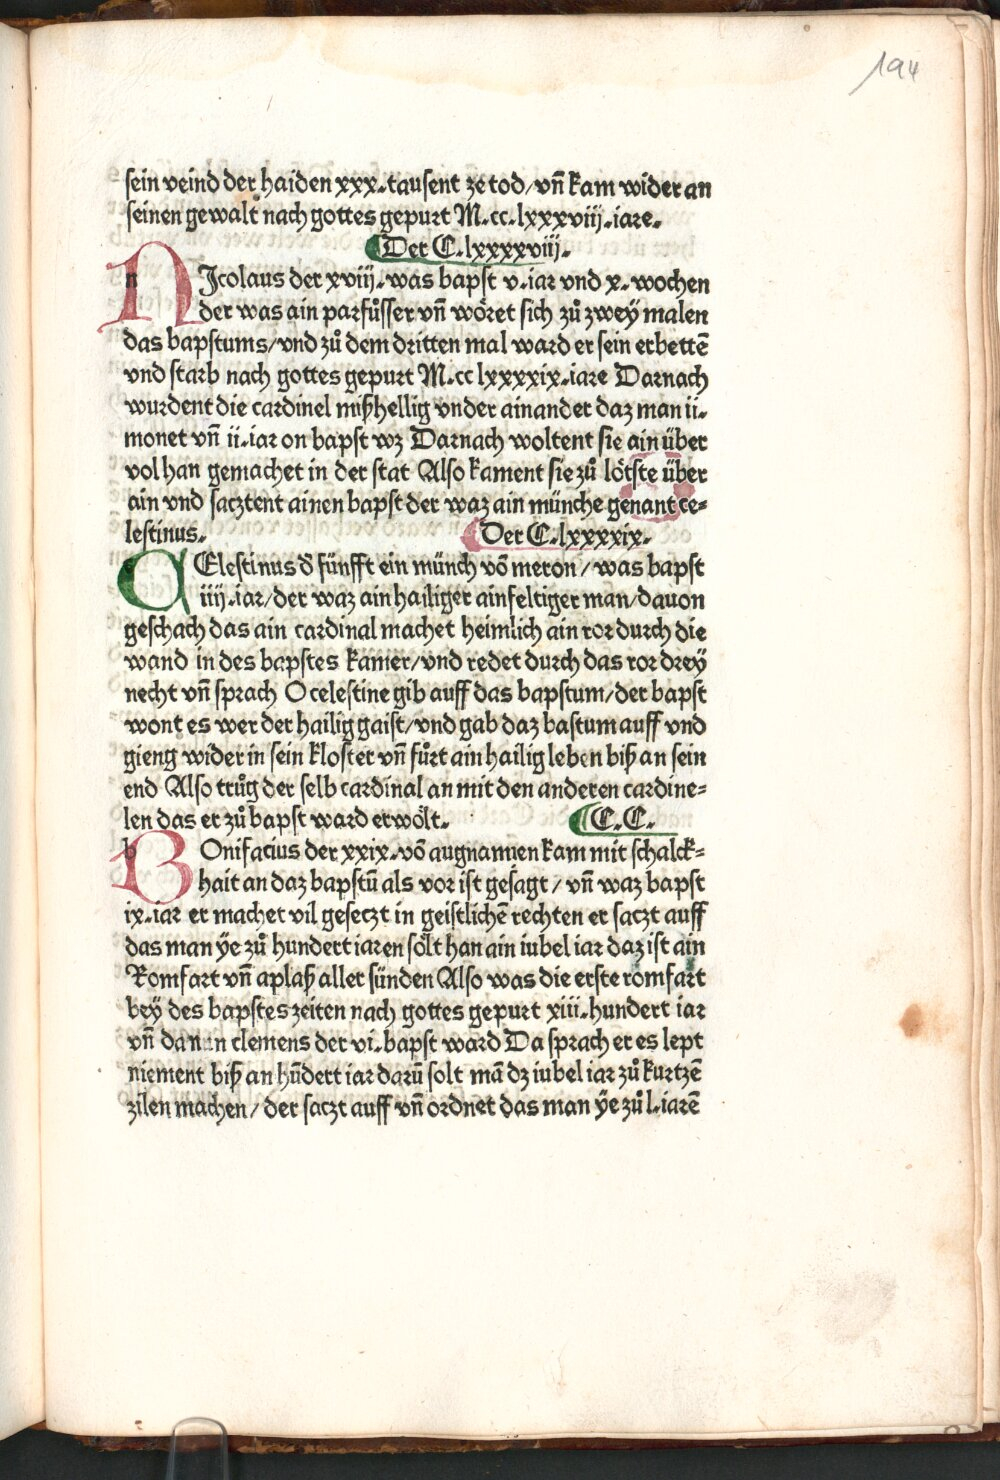 194
sein veind der haiden xxx.tausent ze tod/vn̄ kam wider an
seinen gewalt nach gottes gepurt M.cc.lxxxviij.iare.
Der C.lxxxxviij.
NIcolaus der xviij.was bapst v.iar vnd x.wochen
der was ain parfůsser vn̄ wöret sich zů zweÿ malen
das bapstums/vnd zů dem dritten mal ward er sein erbettē
vnd starb nach gottes gepurt M.cc lxxxxix.iare Darnach
wurdent die cardinel mißhellig vnder ainander daz man ii.
monet vn̄ ii.iar on bapst wz Darnach woltent sie ain über
vol han gemachet in der stat Also kament sie zů lötste über
ain vnd saczтent ainen bapst der waz ain münche genant ce⸗
lestinus.
Der C.lxxxxix.
CElestinus d̄ fünfft ein münch võ meron/was bapst
iiij.iar/der waz ain hailiger ainfeltiger man/davon
geschach das ain cardinal machet heimlich ain ror durch die
wand in des bapstes kamer/vnd redet durch das ror dreÿ
necht vn̄ sprach O celestine gib auff das bapstum/der bapst
wont es wer der hailig gaist/vnd gab daz bastum auff vnd
gieng wider in sein kloster vn̄ fůrt ain hailig leben biß an sein
end Also trůg der selb cardinal an mit den anderen cardine⸗
len das er zů bapst ward erwölt.
C.C.
BOnifacius der xxix.võ augnamien kam mit schalck⸗
hait an daz bapstū als vor ist gesagt/vn̄ waz bapst
ix.iar er machet vil geseczt in geistlichē rechten er saczt auff
das man ÿe zů hundert iaren sölt han ain iubel iar daz ist ain
Romfart vn̄ aplaß aller sünden Also was die erste romfart
beÿ des bapstes zeiten nach gottes gepurt xiii.hundert iar
vn̄ dannn clemens der vi.bapst ward Da sprach er es lept
niement biß an hūdert iar darū solt mā dz iubel iar zů kurtzē
zilen machen/der saczt auff vn̄ ordnet das man ÿe zů l.iarē